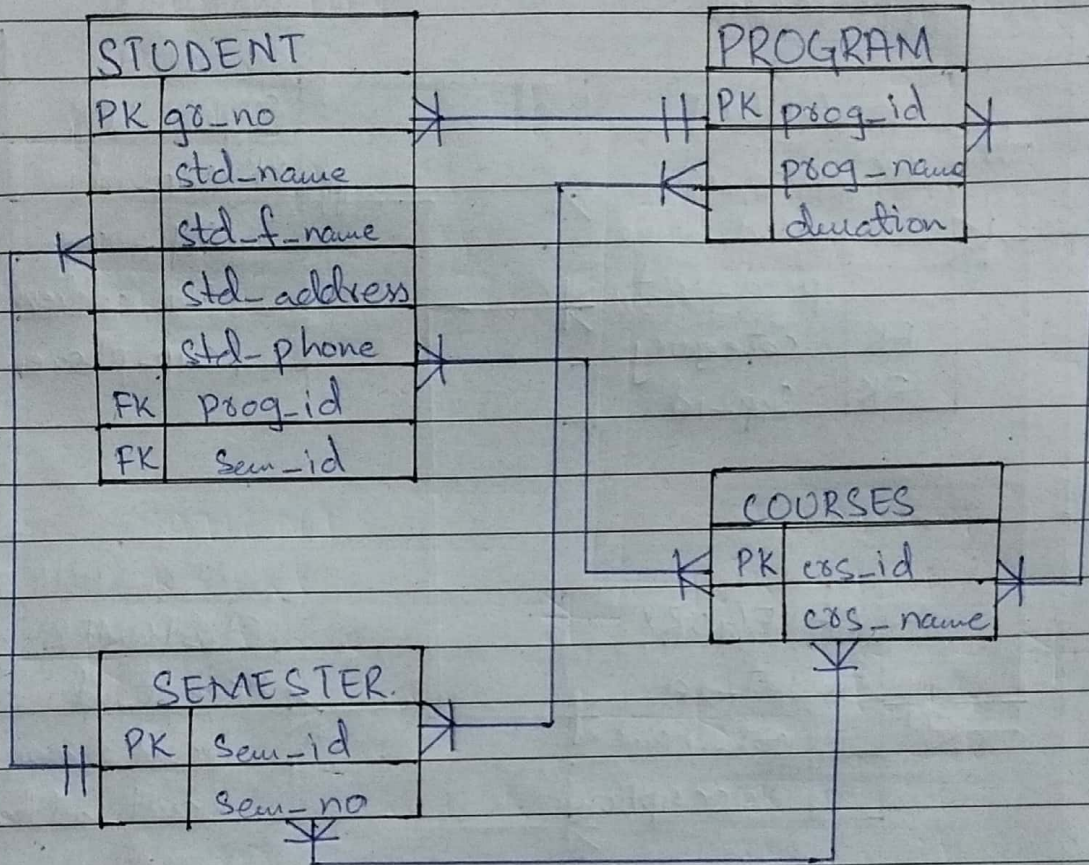 STUDENT
PK gr_no
std_name
std_f_name
std_address
std_phone
FK prog_id
FK sem_id
PROGRAM
PK prog_id
prog_name
duration
COURSES
PK crs_id
crs_name
SEMESTER.
PK sem_id
sem_no